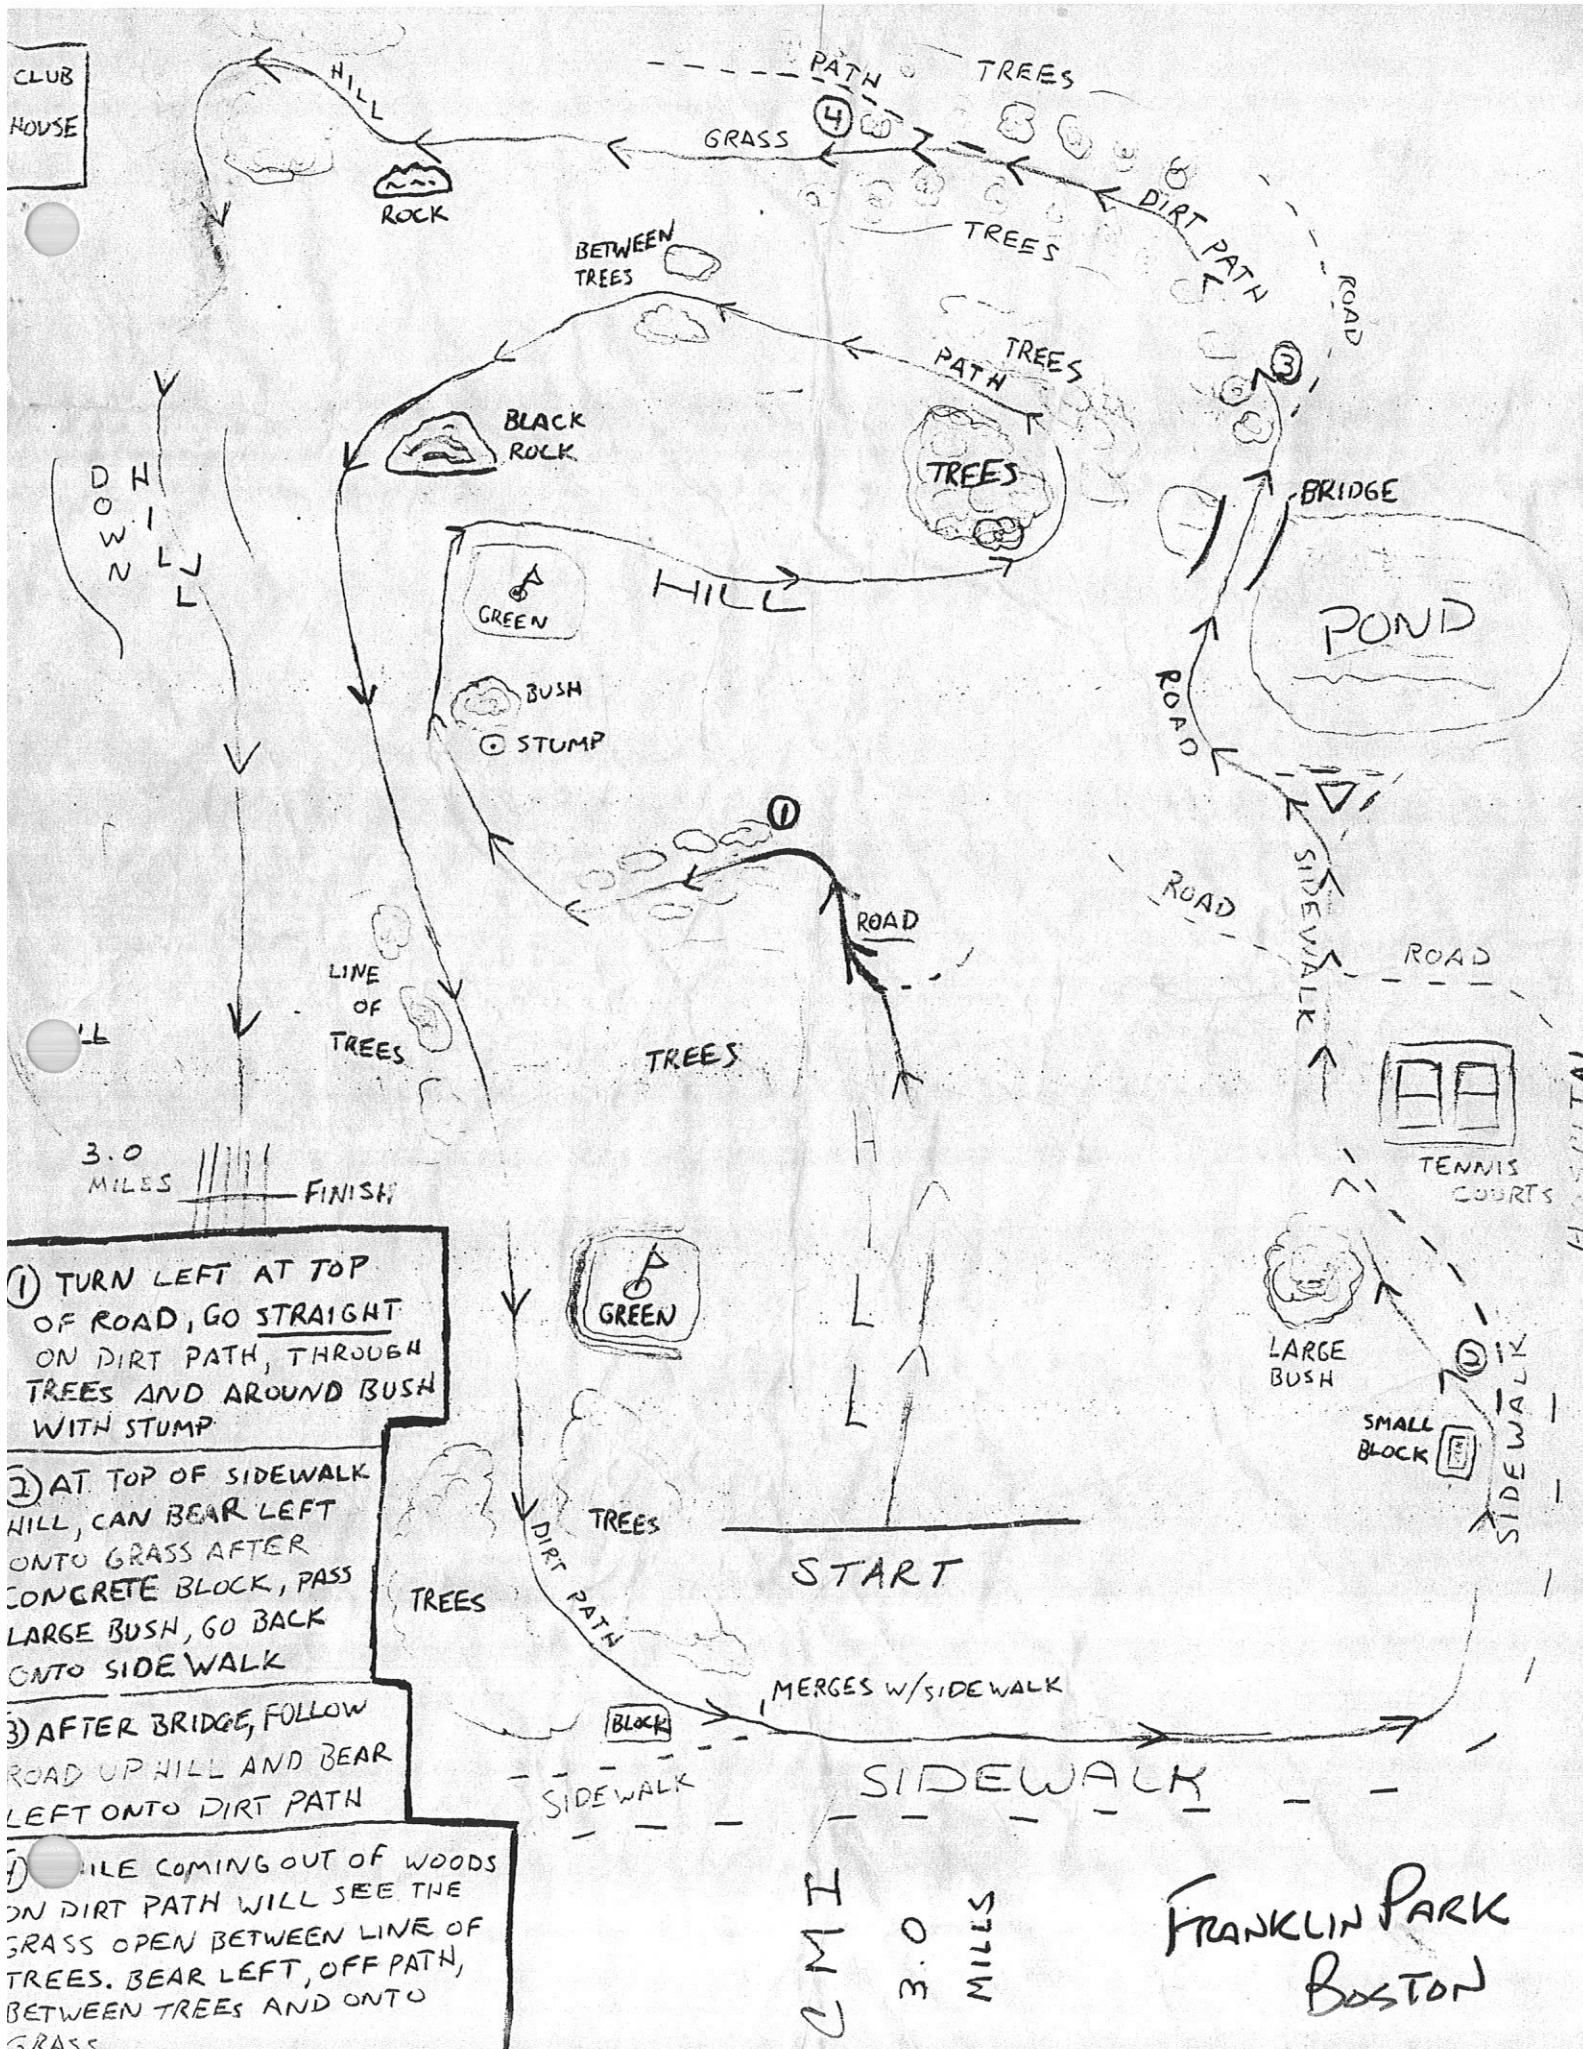 CLUB
HOUSE
HILL
PATH
TREES
4
GRASS
ROCK
DIRT PATH
TREES
ROAD
BETWEEN
TREES
TREES
PATH
3
BLACK
ROCK
TREES
BRIDGE
DOWN
HILL
GREEN
HILL
POND
BUSH
STUMP
ROAD
1
SIDEWALK
ROAD
ROAD
ROAD
LINE
OF
TREES
TREES
HILL
TENNIS
COURTS
3.0
MILES
FINISH
GREEN
LARGE
BUSH
2
SIDEWALK
SMALL
BLOCK
SIDEWALK
TREES
START
DIRT PATH
TREES
MERGES W/SIDEWALK
BLOCK
SIDEWALK
SIDEWALK
1 TURN LEFT AT TOP
OF ROAD, GO STRAIGHT
ON DIRT PATH, THROUGH
TREES AND AROUND BUSH
WITH STUMP
2) AT TOP OF SIDEWALK
HILL, CAN BEAR LEFT
ONTO GRASS AFTER
CONCRETE BLOCK, PASS
LARGE BUSH, GO BACK
ONTO SIDEWALK
3) AFTER BRIDGE, FOLLOW
ROAD UP HILL AND BEAR
LEFT ONTO DIRT PATH
COMING OUT OF WOODS
ON DIRT PATH WILL SEE THE
GRASS OPEN BETWEEN LINE OF
TREES. BEAR LEFT, OFF PATH,
BETWEEN TREES AND ONTO
GRASS
CMI
3.0
MILLS
FRANKLIN PARK
BOSTON